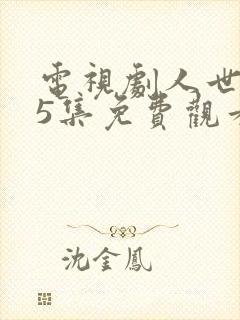 電視劇人世
5集免費觀
沈金鳳